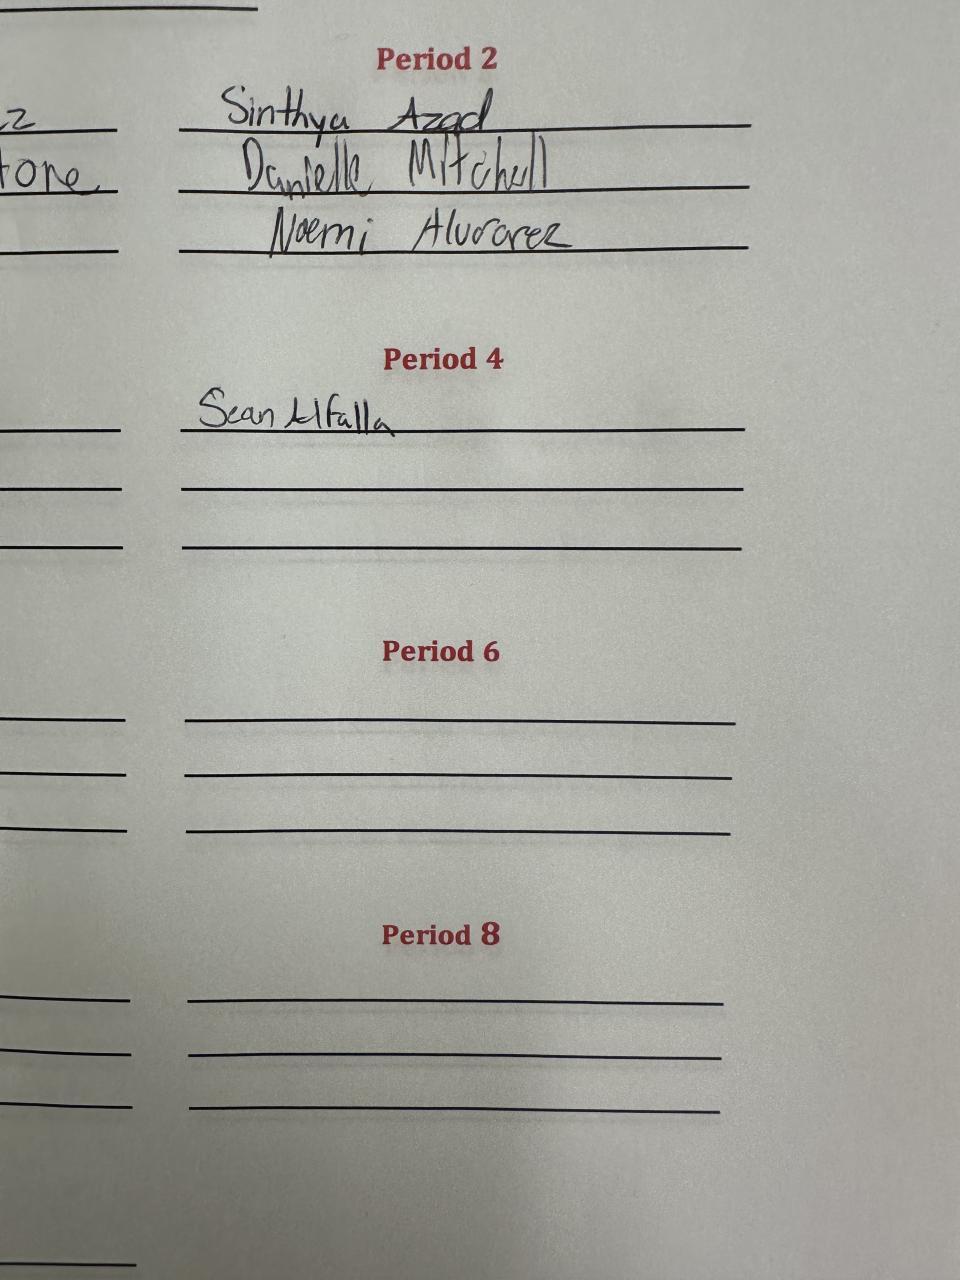 Period 2
Sinthya Azad
Danielle Mitchell
Noemi Alvarez
Period 4
Sean Alfalla
Period 6
Period 8